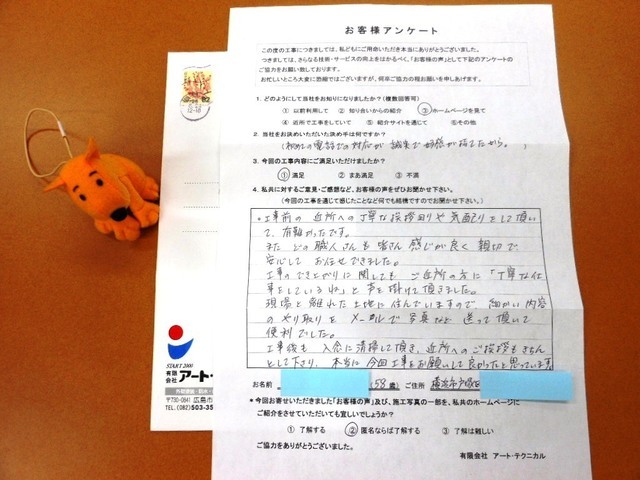 お客様アンケート
この度の工事につきましては、私どもにご用命いただき本当にありがとうございました。
つきましては、さらなる技術・サービスの向上をはかるべく、「お客様の声」として下記のアンケートの
ご協力をお願い致しております。
お忙しいところ大変に恐縮ではございますが、何卒ご協力の程お願いを申しあげます。
1. どのようにして当社をお知りになりましたか?(複数回答可)
① 以前利用して ② 知り合いからの紹介 ③ ホームページを見て
④ 近所で工事をしていて ⑤ 紹介サイトを通じて ⑥その他
2. 当社をお決めいただいた決め手は何ですか?
(初めての電話での対応が 誠実で好感が持てたから。)
3. 今回の工事内容にご満足いただけましたか?
① 満足 ② まあ満足 ③ 不満
4. 私共に対するご意見・ご感想など、お客様の声をぜひお聞かせ下さい。
(今回の工事を通じて感じたことなど何でも結構ですのでお聞かせ下さい。)
・工事前の 近所への丁寧な挨拶回りや 気配りをして頂い
て、有難かったです。
また どの職人さんも 皆さん 感じが良く 親切で、
安心して お任せできました。
工事のできあがりに関しても ご近所の方に「丁寧な仕
事をしているね」と 声を掛けて頂きました。
現場と離れた土地に住んでいますので、細かい内容
のやり取りを メールで 写真など 送って頂いて
便利でした。
工事後も 入念に清掃して頂き、近所へのご挨拶もきちん
として下さり、本当に今回工事をお願いして良かったと思っています。
お名前 (58歳) ご住所 横浜市戸塚区
*今回お寄せいただきました「お客様の声」及び、施工写真の一部を、私共のホームページに
ご紹介をさせていただいても宜しいでしょうか?
① 了解する ② 匿名ならば了解する ③ 了解は難しい
ご協力をありがとうございました。
有限会社 アート・テクニカル
82
START 2001
有限
会社 アート・
〒730-084 広島市
TEL.(082)503-35